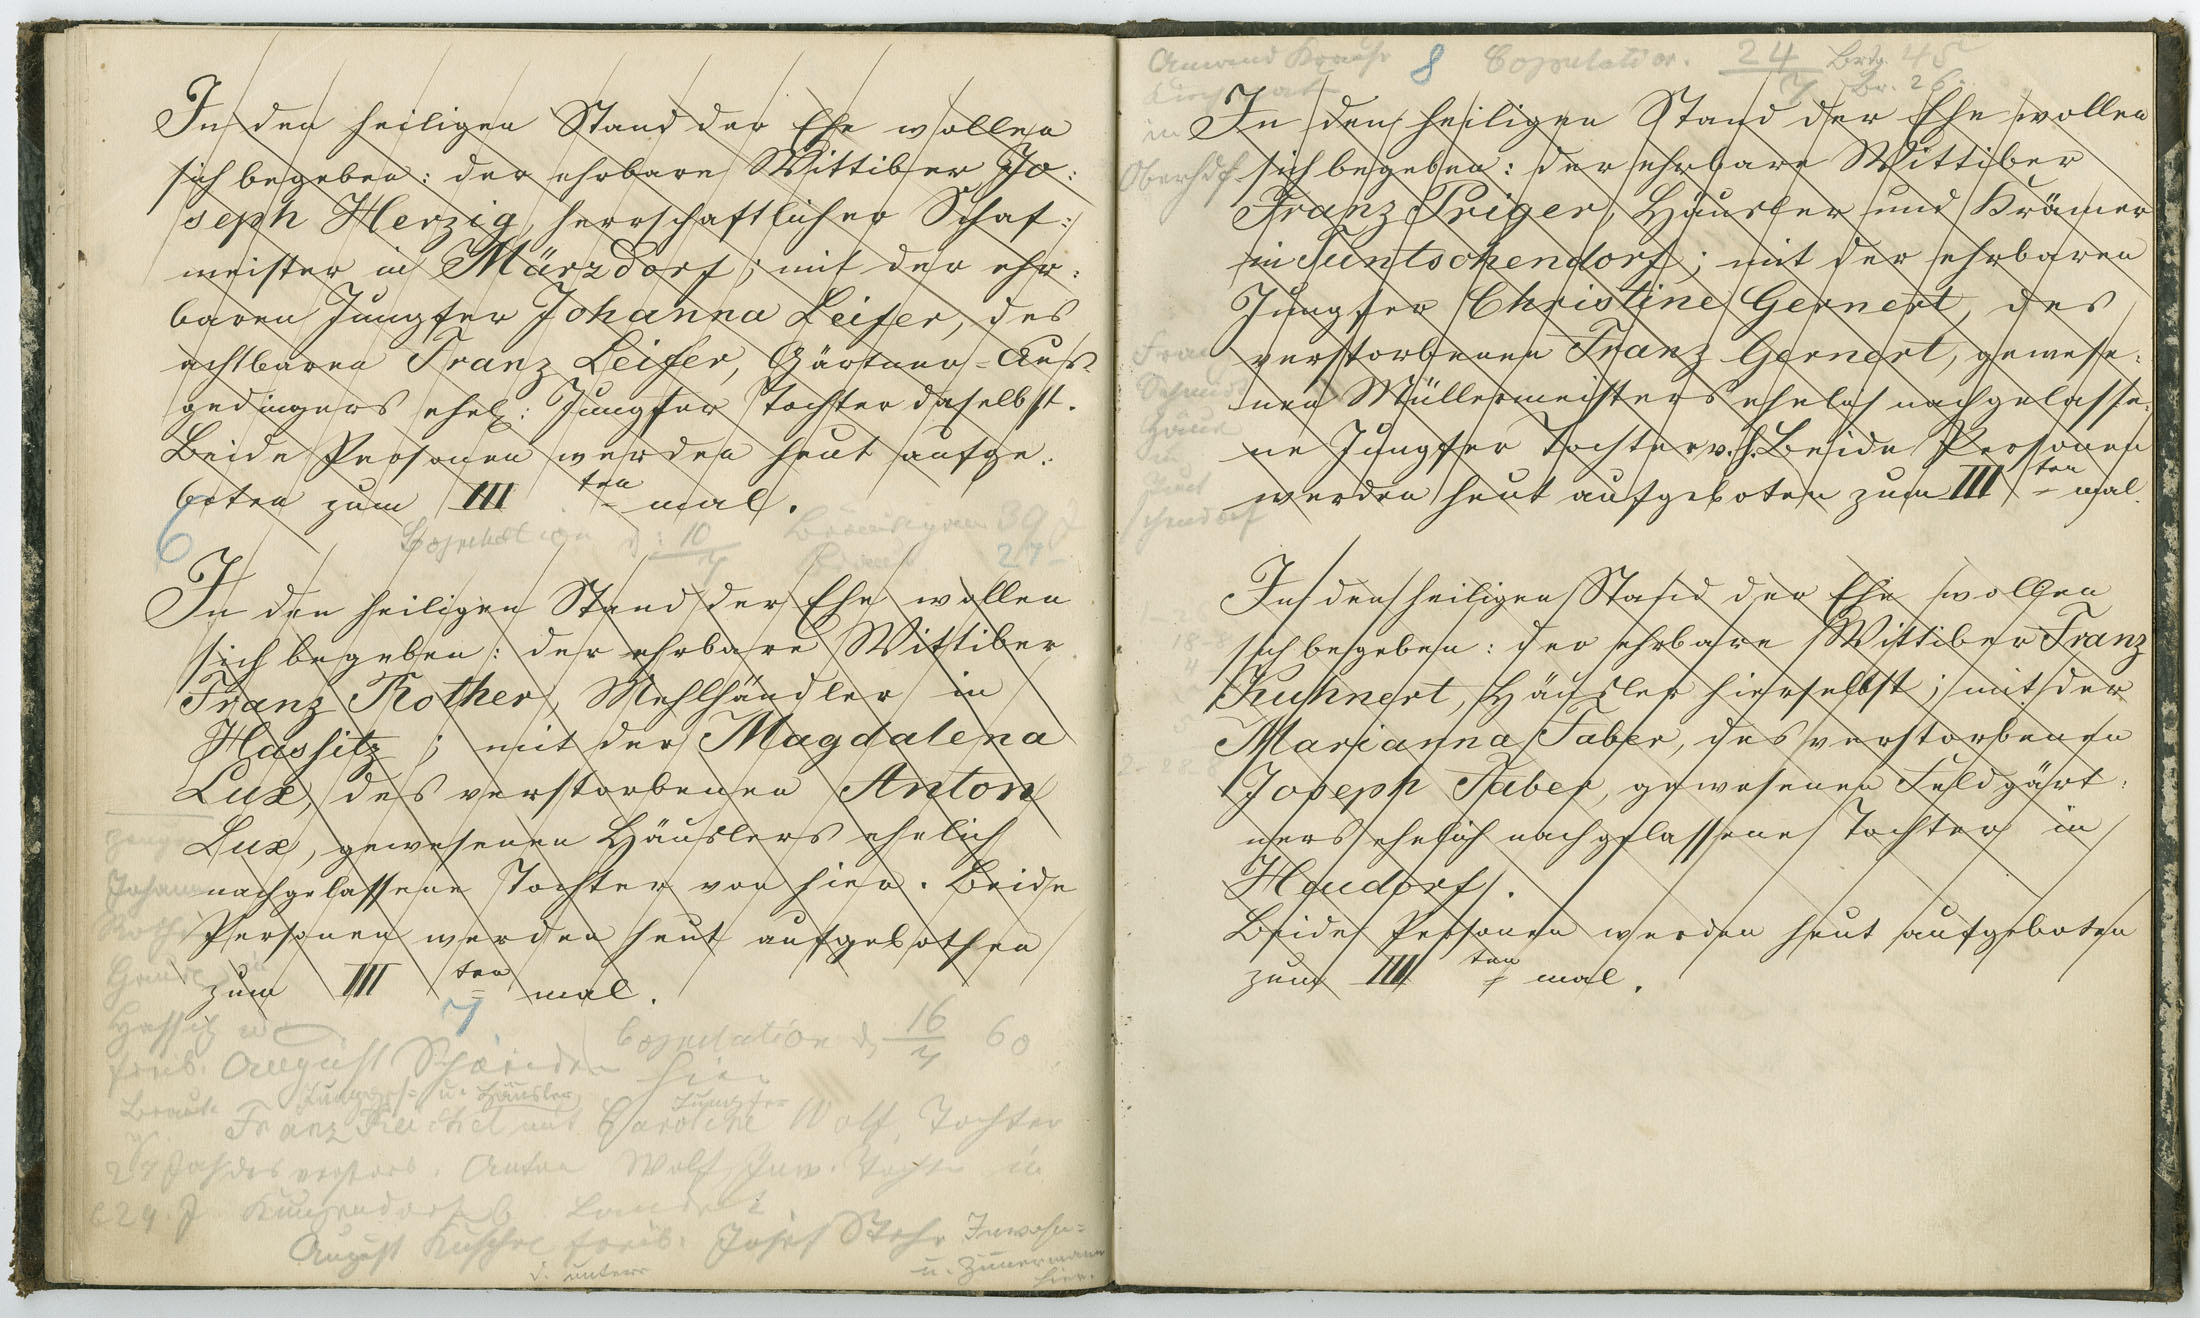 In den heiligen Stand der Ehe wollen
sich begeben: der ehrbare Wittiber Jo:
seph Herzig, herrschaftlicher Schaf:
meister in Märzdorf; mit der ehr:
baren Jungfer Johanna Leifer, des
achtbaren Franz Leifer, Gärtner-Aus:
gedingers ehel: Jungfer Tochter daselbst.
Beide Personen werden heut aufge:
boten zum III ten mal.
6 Copulation d: 10/7 Bräutigam 39 J
Braut 27
In den heiligen Stand der Ehe wollen
sich begeben: der ehrbare Wittiber
Franz Rother, Mehlhändler in
Hassitz; mit der Magdalena
Lux, des verstorbenen Anton
Lux, gewesenen Häuslers ehelich
nachgelassene Tochter von hier. Beide
Personen werden heut aufgebothen
zum III ten mal.
7 Copulation d 16/7 60
August
hier
u. Häusler Jungfer
Franz Reichel mit Caroline Wolf, Tochter
des verstorb. Anton Wolf, Inw. Tochter in
24 J Kunzendorf b. Landeck
August Kuschel Josef Stehr Inwohn=
u. Zimmermann
hier.
8 Copulation. 24/7 Brtg. 45
Br. 26
in
Oberhdf
In den heiligen Stand der Ehe wollen
sich begeben: der ehrbare Wittiber
Franz Priger, Häusler und Krämer
in Tuntschendorf; mit der ehrbaren
Jungfer Christine Gernert, des
verstorbenen Franz Gernert, gewese:
nen Müllermeisters ehelich nachgelasse:
ne Jungfer Tochter v. h. Beide Personen
werden heut aufgeboten zum III ten mal.
Franz
In den heiligen Stand der Ehe wollen
sich begeben: der ehrbare Wittiber Franz
Kuhnert, Häusler hierselbst; mit der
Marianna Taber, des verstorbenen
Joseph Taber, gewesenen Feldgärt:
ners ehelich nachgelassene Tochter in
Heudorf.
Beide Personen werden heut aufgeboten
zum III ten mal.